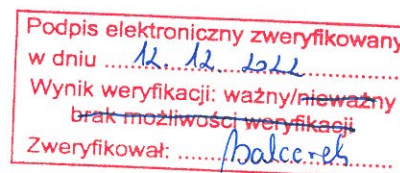 Podpis elektroniczny zweryfikowany
w dniu ...12. 12. 2022...............
Wynik weryfikacji: ważny/nieważny
brak możliwości weryfikacji
Zweryfikował: ......Balcerek......